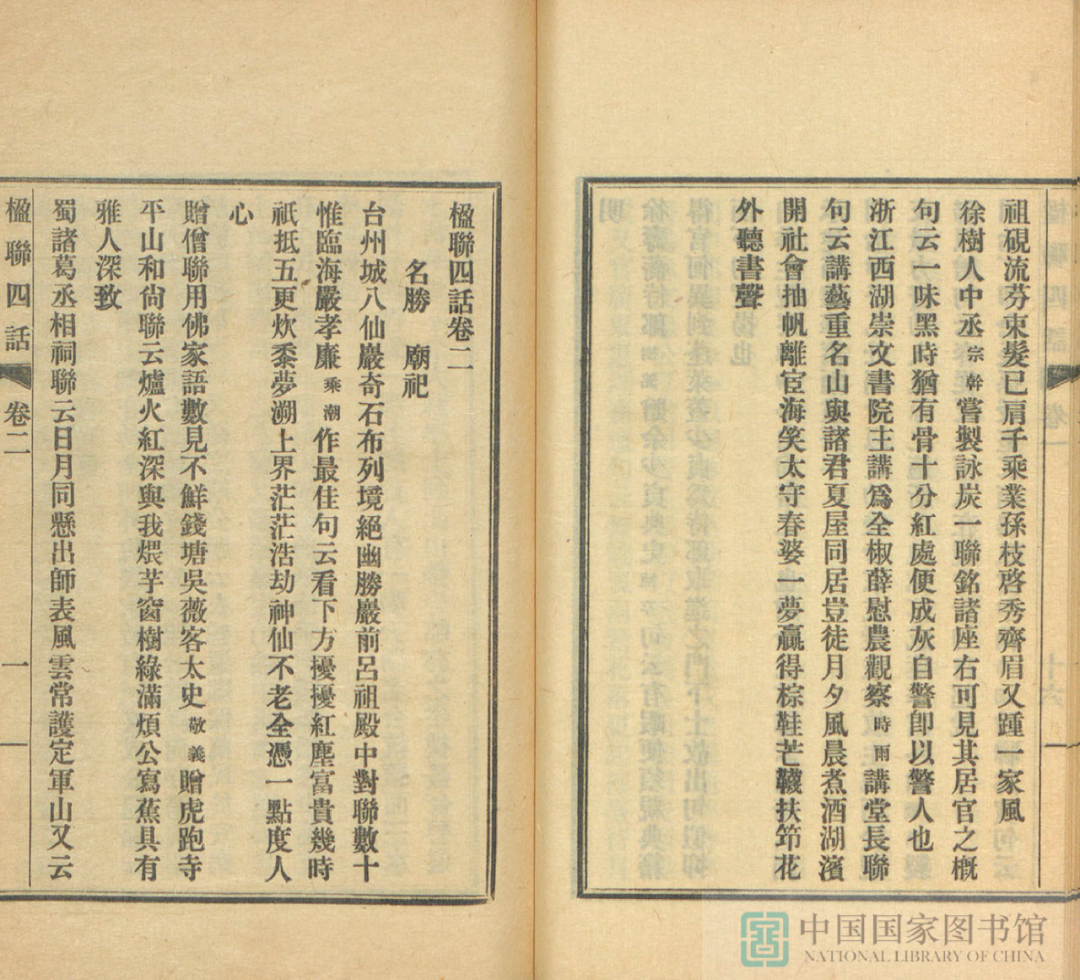 祖硯流芬束髮已肩千乘業孫枝啓秀齊眉又踵一家風
徐樹人中丞宗幹嘗製詠炭一聯銘諸座右可見其居官之概
句云一味黑時猶有骨十分紅處便成灰自警卽以警人也
浙江西湖崇文書院主講爲全椒薛慰農觀察時雨講堂長聯
句云講藝重名山與諸君夏屋同居豈徒月夕風晨煮酒湖濱
開社會抽帆離宦海笑太守春婆一夢贏得棕鞋芒韈扶笻花
外聽書聲
楹聯四話卷二
名勝 廟祀
台州城八仙巖奇石布列境絕幽勝巖前呂祖殿中對聯數十
惟臨海嚴孝廉乘潮作最佳句云看下方擾擾紅塵富貴幾時
祇抵五更炊黍夢溯上界茫茫浩劫神仙不老全憑一點度人
心
贈僧聯用佛家語數見不鮮錢塘吳薇客太史敬義贈虎跑寺
平山和尙聯云爐火紅深與我煨芋窗樹綠滿煩公寫蕉具有
雅人深致
蜀諸葛丞相祠聯云日月同懸出師表風雲常護定軍山又云
楹聯四話 卷二 一
中国国家图书馆
NATIONAL LIBRARY OF CHINA